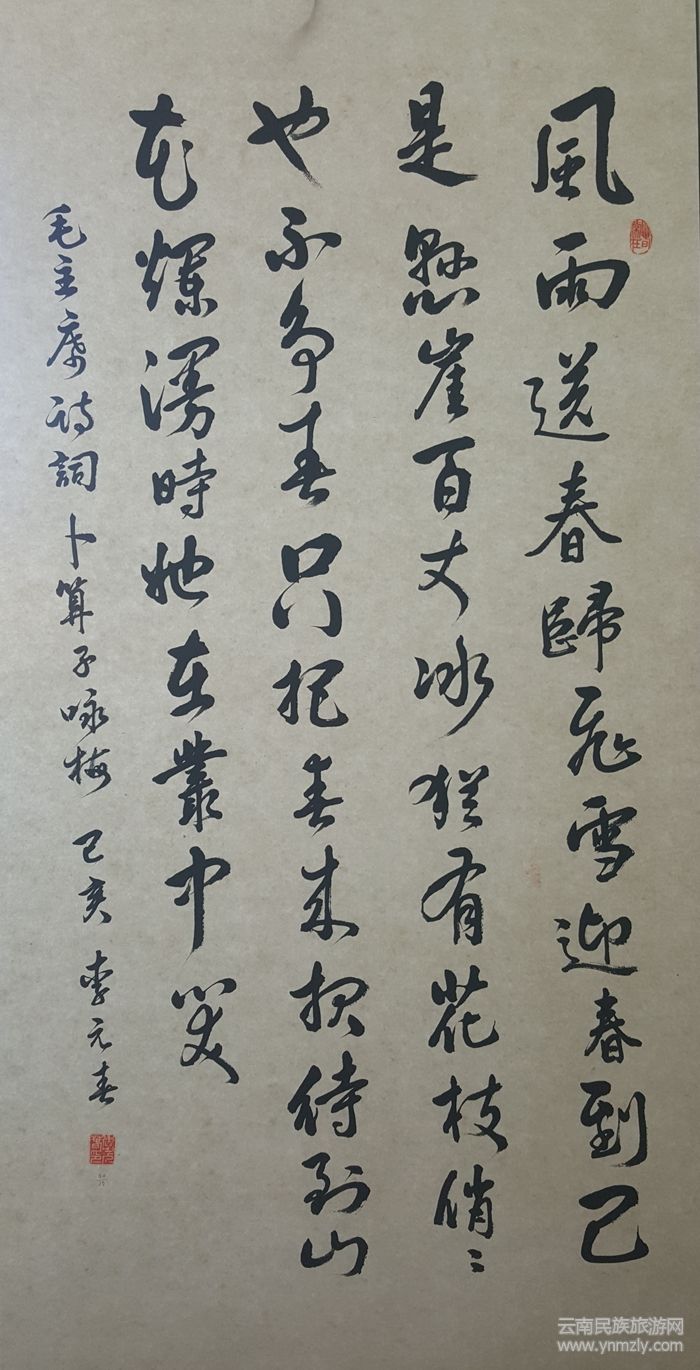 風雨送春歸飛雪迎春到已
是懸崖百丈冰猶有花枝俏〻
也不争春只把春来报待到山
花爛漫時她在叢中笑
毛主席诗詞卜算子咏梅 己亥 李元春
云南民族旅游网
www.ynmzly.com